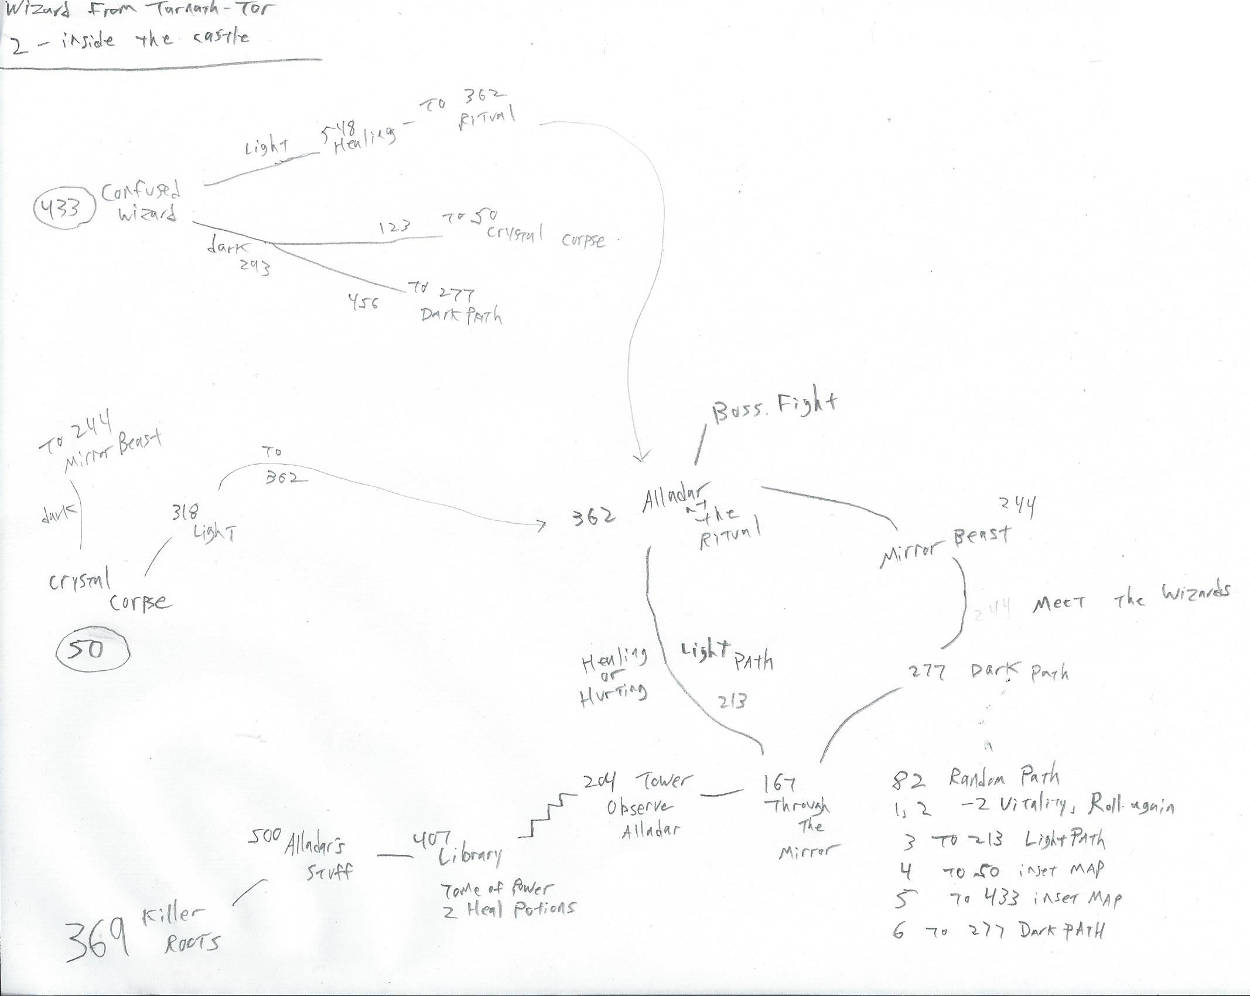 Wizard From Tarnath-Tor
2 - inside the castle
To 362
Ritual
548
Healing -
Light
433
Confused
Wizard
123
To 50
Crystal Corpse
dark
293
456
To 277
Dark Path
Boss Fight
To 244
Mirror Beast
dark
To
362
318
Light
Crystal
Corpse
50
362
Alladar
+
the
Ritual
244
Mirror Beast
244 Meet The Wizards
277 Dark Path
Healing
or
Hurting
Light Path
213
204 Tower
Observe
Alladar
167
Through
The
Mirror
82 Random Path
1, 2 -2 Vitality, Roll again
3 To 213 Light Path
4 To 50 inset MAP
5 To 433 inset MAP
6 To 277 Dark PATH
500 Alladar's
Stuff
407
Library
Tome of Power
2 Heal Potions
369 Killer
Roots